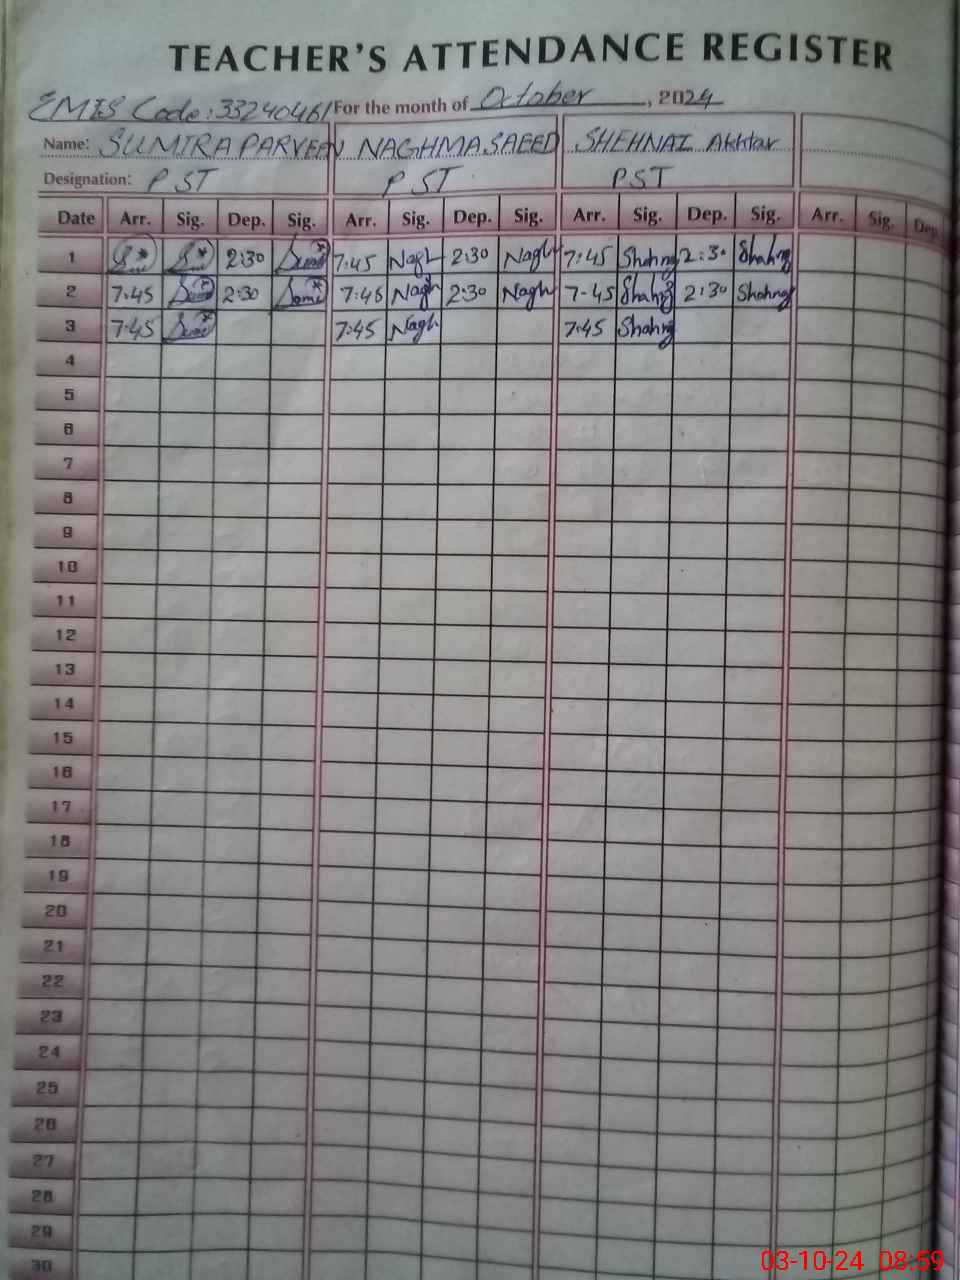 TEACHER'S ATTENDANCE REGISTER
EMIS Code: 33240461 For the month of October, 2024
Name: SUMIRA PARVEEN NAGHMA SAEED SHEHNAZ Akhtar
Designation: PST PST PST
Date Arr. Sig. Dep. Sig. Arr. Sig. Dep. Sig. Arr. Sig. Dep. Sig. Arr. Sig. Dep
1 2:30 7:45 Nagh 2:30 Nagh 7:45 Shahnaz 2:30 Shahnaz
2 7:45 2:30 7:45 Nagh 2:30 Nagh 7-45 Shahnaz 2:30 Shahnaz
3 7:45 7:45 Nagh 7:45 Shahnaz
4
5
6
7
8
9
10
11
12
13
14
15
16
17
18
19
20
21
22
23
24
25
26
27
28
29
30
03-10-24 08:59